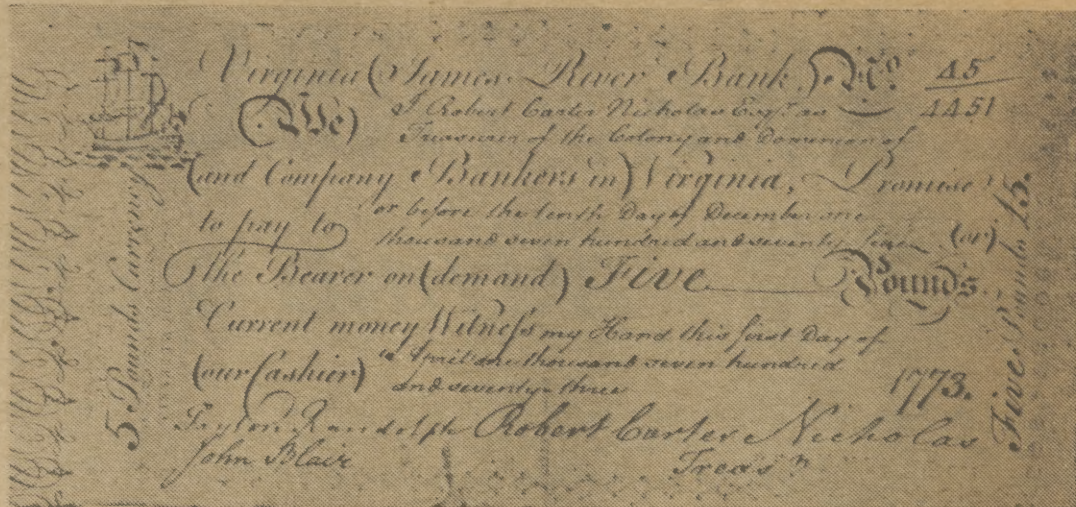 Virginia (James River Bank.) No. 45
4451
(We) I Robert Carter Nicholas Esqr. as
Treasurer of the Colony and Dominion of
(and Company Bankers in) Virginia, Promise
to pay to or before the tenth Day of December one
thousand seven hundred and seventy (or)
the Bearer on (demand) Five Pounds.
Current money Witness my Hand this first Day of
(our Cashier) April one thousand seven hundred
and seventy-three 1773.
Peyton Randolph Robert Carter Nicholas
John Blair Treasr
5 Pounds Currency
Five Pounds £5.